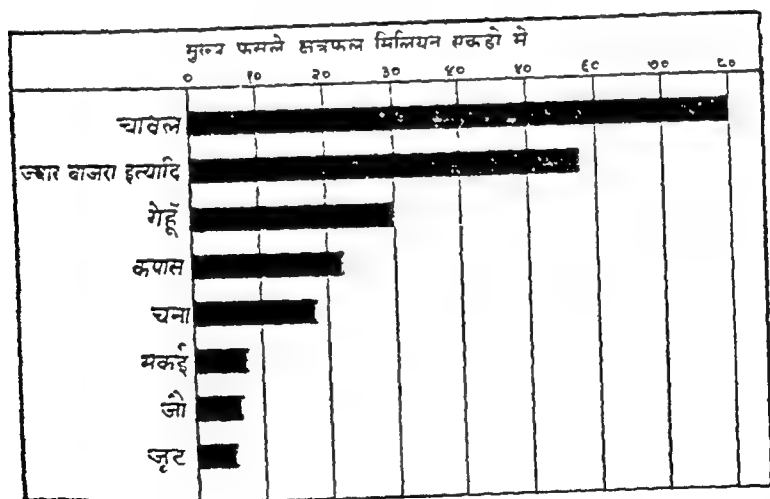 मुख्य फसले क्षत्रफल मिलियन एकडो में
० १० २० ३० ४० ५० ६० ७० ८०
चावल
ज्वार बाजरा इत्यादि
गेहूँ
कपास
चना
मकई
जौ
जूट